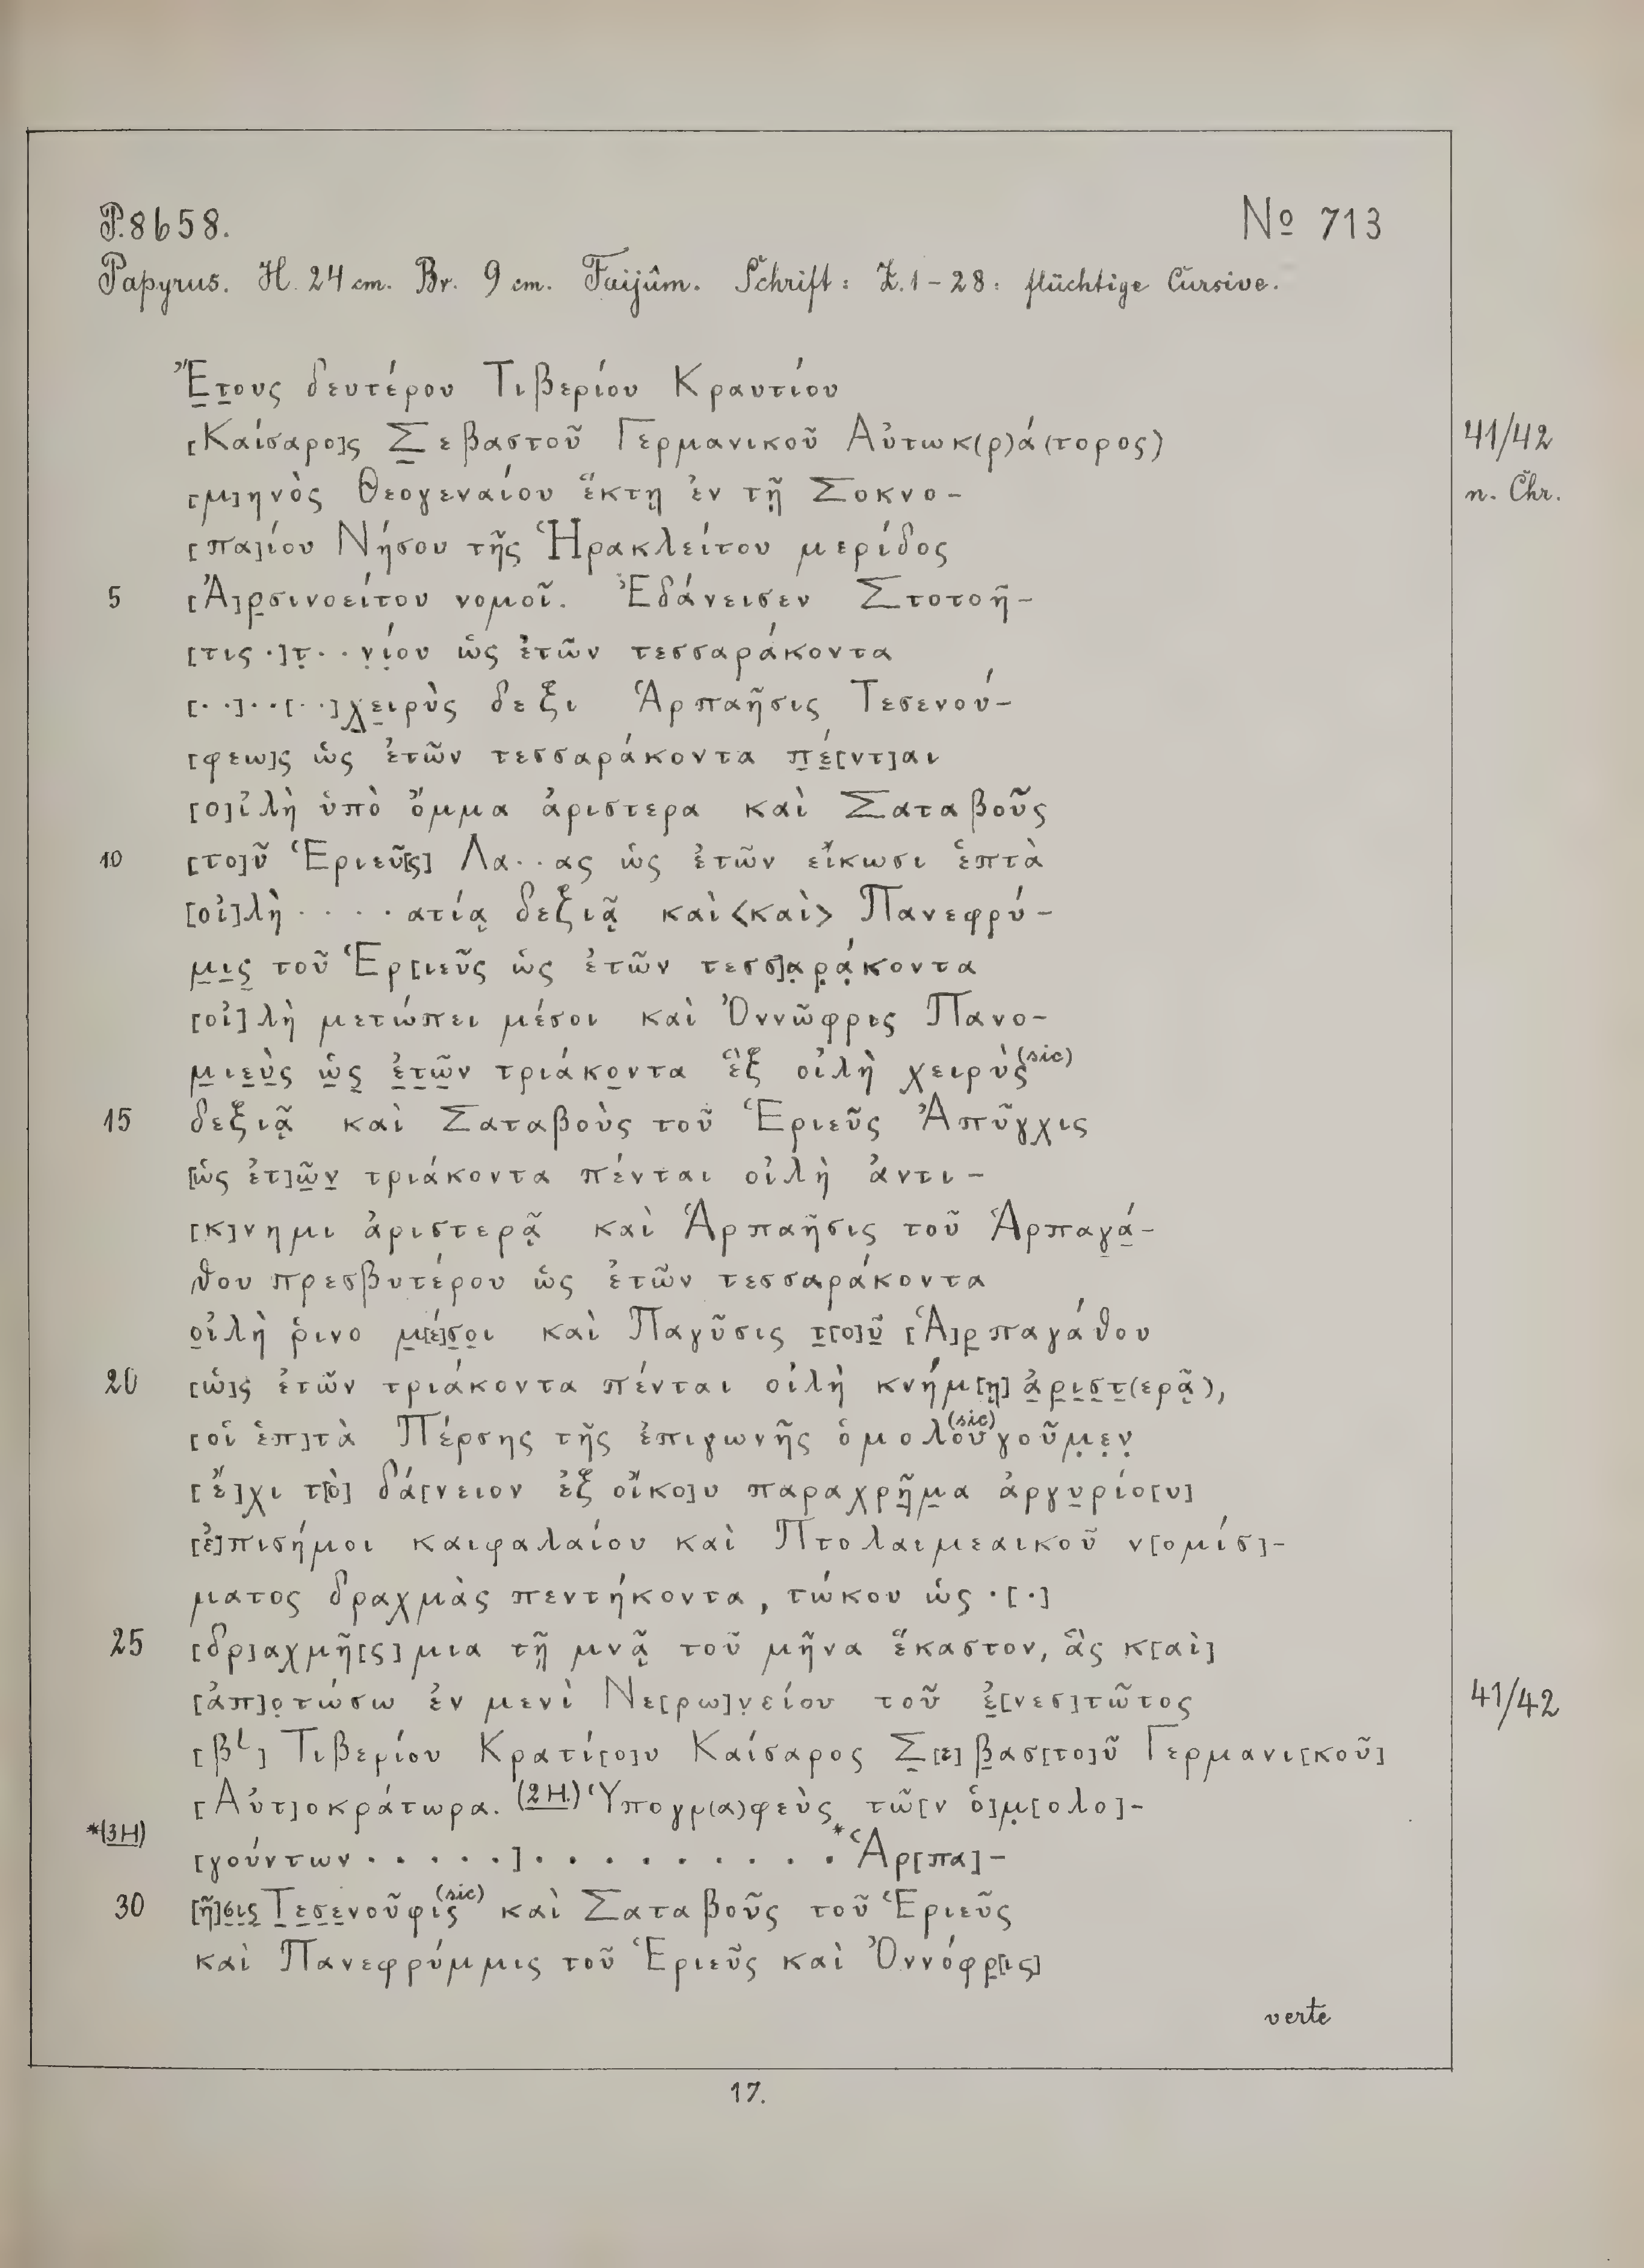 P. 8658. No 713
Papyrus. H. 24 cm. Br. 9 cm. Faijûm. Schrift: Z. 1-28: flüchtige Cursive.
Ἔτους δευτέρου Τιβερίου Κραυτίου
[Καίσαρο]ς Σεβαστοῦ Γερμανικοῦ Αὐτωκ(ρ)ά(τορος) 41/42
[μ]ηνὸς Θεογεναίου ἕκτῃ ἐν τῇ Σοκνο- n. Chr.
[πα]ίου Νήσου τῆς Ἡρακλείτου μερίδος
5 [Ἀ]ρσινοείτου νομοῖ. Ἐδάνεισεν Στοτοῆ-
[τις ·]τ̣··ν̣ί̣ου ὡς ἐτῶν τεσσαράκοντα
[··]··[··]χειρὺς δεξι Ἁρπαῆσις Τεσενού-
[φεω]ς ὡς ἐτῶν τεσσαράκοντα πέ[ντ]αι
[ο]ἰλὴ ὑπὸ ὄμμα ἀριστερα καὶ Σαταβοῦς
10 [το]ῦ Ἑριεῦ[ς] Λα··ας ὡς ἐτῶν εἴκωσι ἑπτὰ
[οἰ]λὴ ····ατίᾳ δεξιᾷ καὶ<καὶ> Πανεφρύ-
μις τοῦ Ἑρ[ιεῦς ὡς ἐτῶν τεσσ]α̣ρ̣ά̣κοντα
[οἰ]λὴ μετώπει μέσοι καὶ Ὀννῶφρις Πανο-
μιεὺς ὡς ἐτῶν τριάκοντα ἓξ οἰλὴ χειρὺς(sic)
15 δεξιᾷ καὶ Σαταβοὺς τοῦ Ἑριεῦς Ἀπῦγχις
[ὡς ἐτ]ῶν τριάκοντα πένται οἰλὴ ἀντι-
[κ]νημι ἀριστερᾷ καὶ Ἁρπαῆσις τοῦ Ἁρπαγά-
θου πρεσβυτέρου ὡς ἐτῶν τεσσαράκοντα
οἰλὴ ῥινο μ[έ]σοι καὶ Παγῦσις τ[ο]ῦ [Ἁ]ρπαγάθου
20 [ὡ]ς ἐτῶν τριάκοντα πένται οἰλὴ κνήμ[ῃ] ἀριστ(ερᾷ),
[οἱ ἑπ]τὰ Πέρσης τῆς ἐπιγωνῆς ὁμολου(sic)γοῦμ̣ε̣ν̣
[ἔ]χι τ[ὸ] δά[νειον ἐξ οἴκο]υ παραχρῆμα ἀργυρίο[υ]
[ἐ]πισήμοι καιφαλαίου καὶ Πτολαιμεαικοῦ ν[ομίσ]-
ματος δραχμὰς πεντήκοντα, τώκου ὡς ·[·]
25 [δρ]αχμῆ[ς] μια τῇ μνᾷ τοῦ μῆνα ἕκαστον, ἃς κ[αὶ]
[ἀπ]ο̣τώσω ἐν μενὶ Νε[ρω]ν̣είου τοῦ ἐ[νεσ]τῶτος 41/42
[β⌊] Τιβερίου Κρατί[ο]υ Καίσαρος Σ[ε]βασ[το]ῦ Γερμανι[κοῦ]
[Αὐτ]οκράτωρα. (2 H.) Ὑπογρ(α)φεὺς τῶ[ν ὁ]μ̣[ολο]-
*(3 H) [γούντων ·····]··········*Ἁρ[πα]-
30 [ῆ]σις Τεσενοῦφις(sic) καὶ Σαταβοῦς τοῦ Ἑριεῦς
καὶ Πανεφρύμμις τοῦ Ἑριεῦς καὶ Ὀννόφρ[ις]
verte
17.